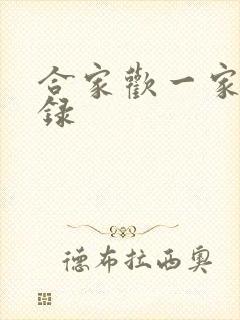 合家歡一家
録
德布拉西奥